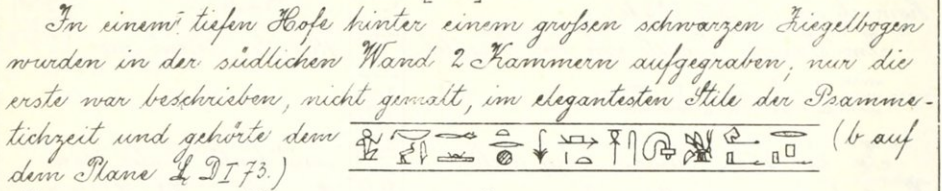 In einem tiefen Hofe hinter einem großen schwarzen Ziegelbogen
wurden in der südlichen Wand 2 Kammern aufgegraben, nur die
erste war beschrieben, nicht gemalt, im elegantesten Stile der Psamme-
tichzeit und gehörte dem (b auf
dem Plane L DI 73.)